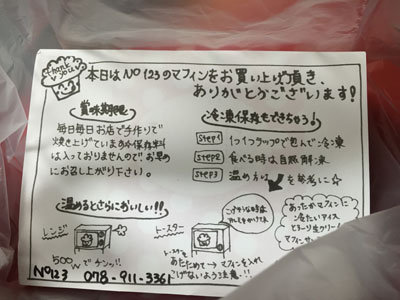 Thank you
本日はNo123のマフィンをお買い上げ頂き、
ありがとうございます!
賞味期限
毎日毎日お店で手作りで
焼き上げています☆保存料
は入っておりませんのでお早め
にお召し上がり下さい。
冷凍保存もできちゃう!
step1 1つ1つラップで包んで冷凍
step2 食べる時は自然解凍
step3 温め を参考に☆
温めるとさらにおいしい!!
レンジ
500wでチンッ!
トースター
トースターを
あたためて→マフィンを入れ
こげないよう注意!!
こげそうな時は
あったかマフィンに
冷たいアイス
生クリーム
No123 078-911-3361